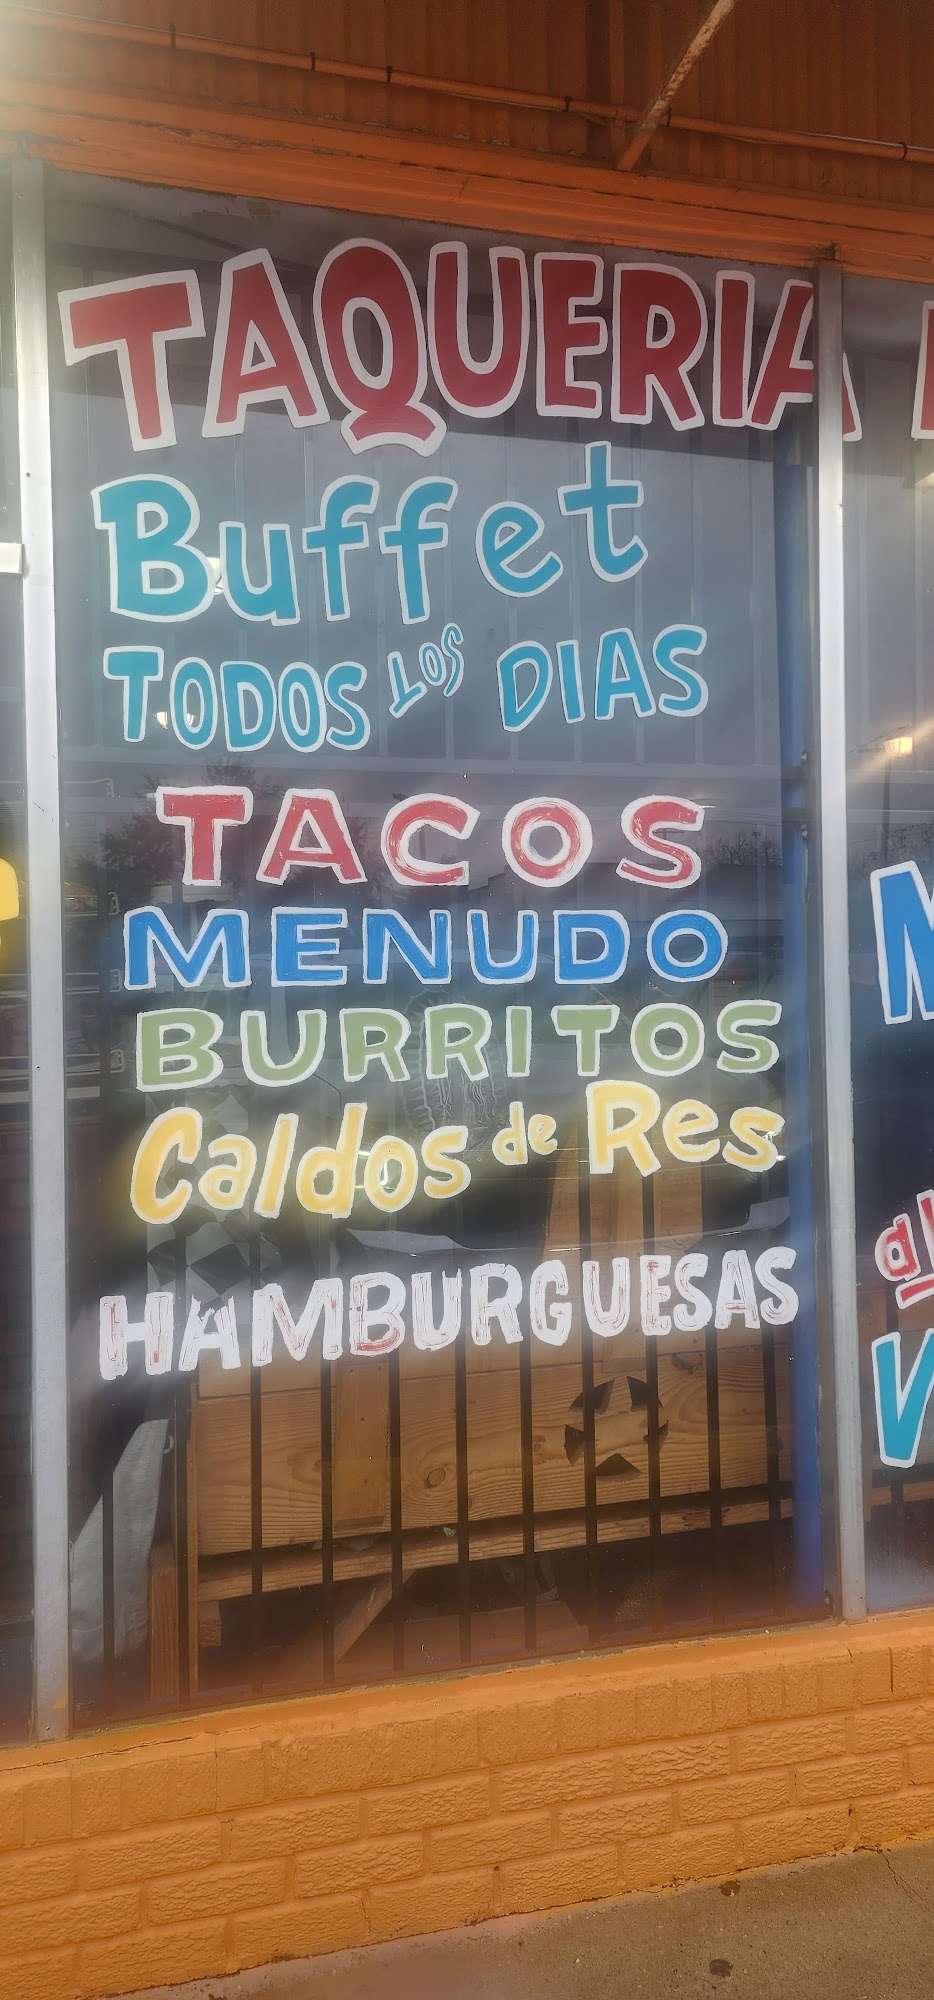 TAQUERIA
Buffet
TODOS LOS DIAS
TACOS
MENUDO
BURRITOS
Caldos de Res
HAMBURGUESAS